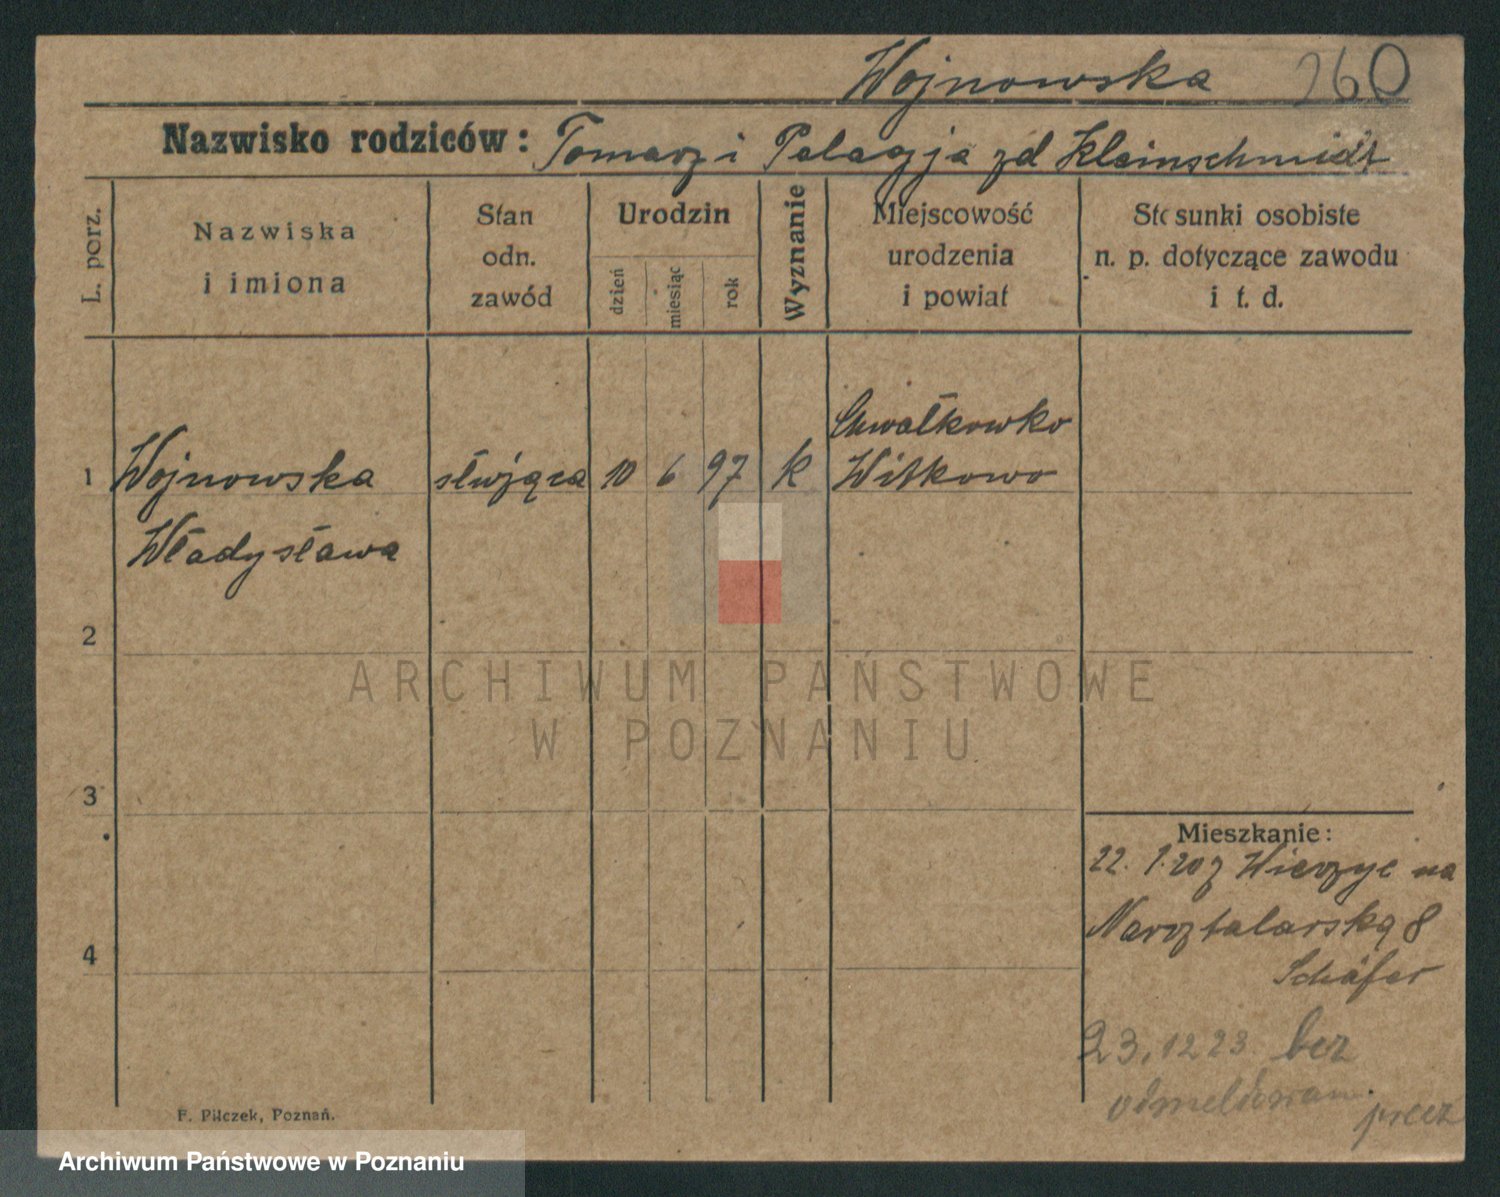 Wojnowska 260
Nazwisko rodziców: Tomarz i Pelagja zd Kleinschmidt
L. porz.
Nazwiska
i imiona
Stan
odn.
zawód
Urodzin
dzień
miesiąc
rok
Wyznanie
Miejscowość
urodzenia
i powiat
Stosunki osobiste
n. p. dotyczące zawodu
i t. d.
Chwałkowko
1 Wojnowska służąca 10 6 97 k Witkowo
Władysława
2
ARCHIWUM PAŃSTWOWE
W POZNANIU
3
Mieszkanie:
22. 1.20 z Wierzyc na
Marsztalarską 8
Schäfer
4
23.12 23 bez
odmeldowan. precz
F. Pilczek, Poznań.
Archiwum Państwowe w Poznaniu